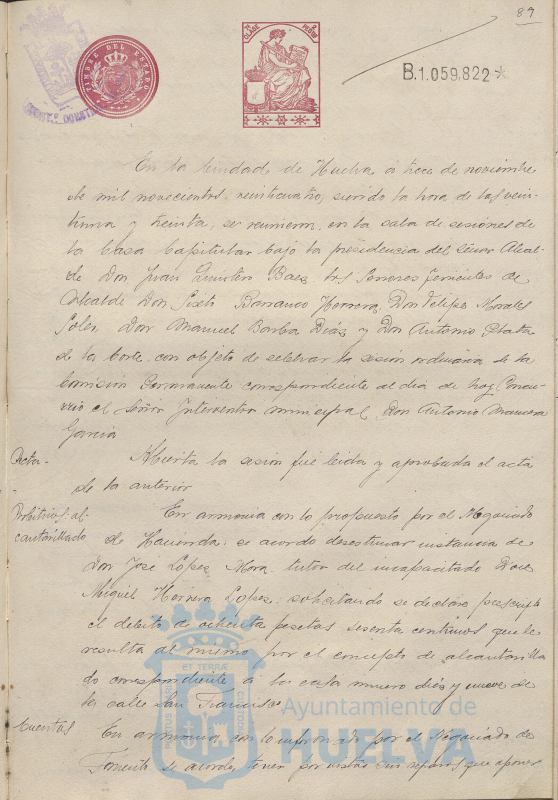 89
TIMBRE DEL ESTADO
7ª CLASE
2 PESETAS
B.1.059.822 *
En la Ciudad de Huelva, a trece de noviembre
de mil novecientos veinticuatro, siendo la hora de las vein-
tiuna y treinta, se reunieron en la sala de sesiones de
la Casa Capitular bajo la presidencia del Señor Alcal-
de Don Juan Quintero Baez los Señores Tenientes de
Alcalde Don Sixto Barranco Herrera, Don Felipe Morales
Don Manuel Barba Diaz y Don Antonio
de la Corte con objeto de celebrar la sesión ordinaria de la
Comisión Permanente correspondiente al día de hoy. Concu-
rrió el Señor Interventor municipal, Don Antonio
Garcia
Acta.- Abierta la sesión fué leida y aprobada el acta
de la anterior
Arbitrios. al En armonia con lo propuesto por el Negociado
cantarillado de Hacienda, se acordó desestimar instancia de
Don José López Mora, tutor del incapacitado Don
Miguel Herrera López, solicitando se declare prescripto
el debito de ochenta pesetas sesenta centimos que le
resulta al mismo por el concepto de alcantarilla-
do correspondiente á la casa número diez y nueve de
la calle San Francisco
Cuentas En armonia con lo informado por el Negociado de
Fomento se acordó, tener por vistas sin reparos que oponer
Ayuntamiento de
HUELVA